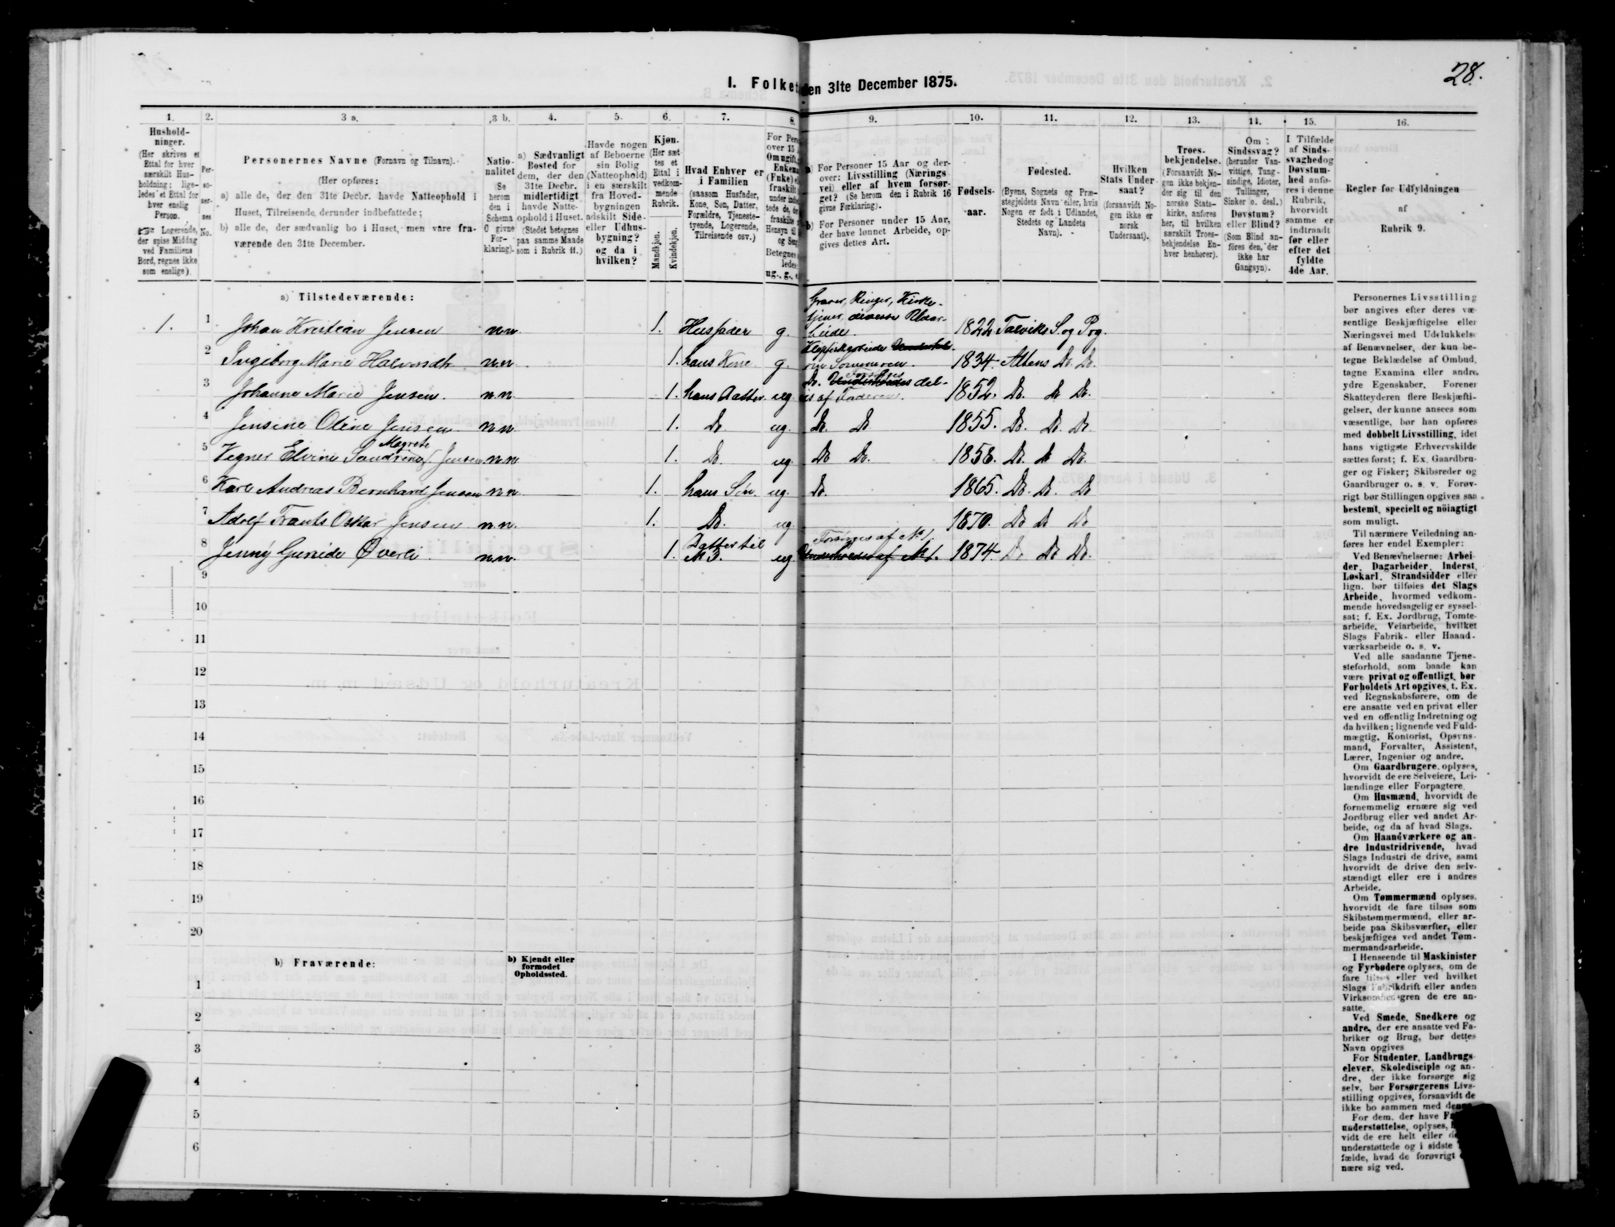 28.
I. Folket den 31te December 1875.
1. 2. 3 a. 3 b. 4. 5. 6. 7. 8. 9. 10. 11. 12. 13. 14. 15. 16.
Hushold-
ninger.
(Her skrives et
Ettal for hver
særskilt Hus-
holdning; lige-
ledes et Ettal for
hver enslig
Person.
Logerende,
der spise Middag
ved Familiens
Bord, regnes ikke
som enslige).
No.
Personernes Navne (Fornavn og Tilnavn).
(Her opføres:
a) alle de, der den 31te Decbr. havde Natteophold i
Huset, Tilreisende derunder indbefattede;
b) alle de, der sædvanlig bo i Huset, men vare fra-
værende den 31te December.
Natio-
nalitet
Se
herom
den i
Schema
C givne
For-
klaring).
a) Sædvanligt
Bosted for
dem, der den
31te Decbr.
midlertidigt
havde Natte-
ophold i Huset.
(Stedet betegnes
paa samme Maade
som i Rubrik 11.)
Havde nogen
af Beboerne
sin Bolig
(Natteophold)
i en særskilt
fra Hoved-
bygningen
adskilt Side-
eller Udhus-
bygning?
og da i
hvilken?
Kjøn.
(Her sæt-
tes et
Ettal i
vedkom-
mende
Rubrik.
Mandkjøn.
Kvindekjøn.
Hvad Enhver er
i Familien
(saasom Husfader,
Kone, Søn, Datter,
Forældre, Tjeneste-
tyende, Logerende,
Tilreisende osv.)
For Pers
over 15
Om ugift,
Enkem
(Fnke)
fraskilt
ug., g., e
a) For Personer 15 Aar og der-
over: Livsstilling (Nærings-
vei) eller af hvem forsør-
get? (Se herom den i Rubrik 16
givne Forklaring).
b) For Personer under 15 Aar,
der have lønnet Arbeide, op-
gives dettes Art.
Fødsels-
aar.
Fødested.
(Byens, Sognets og Præ-
stegjeldets Navn eller, hvis
Nogen er født i Udlandet,
Stedets og Landets
Navn).
Hvilken
Stats Under-
saat?
(forsaavidt No-
gen ikke er
norsk
Undersaat).
Troes-
bekjendelse.
(Forsaavidt No-
gen ikke bekjen-
der sig til den
norske Stats-
kirke, anføres
her, til hvilken
særskilt Troes-
bekjendelse En-
hver henhører).
Om
Sindssvag?
(herunder Van-
vittige, Tung-
sindige, Idioter,
Tullinger,
Sinker o. desl.)
Døvstum?
eller Blind?
(Som Blind an-
føres den, der
ikke har
Gangsyn).
I Tilfælde
af Sinds-
svaghed og
Døvstum-
hed anfø-
res i denne
Rubrik,
hvorvidt
samme er
indtraadt
før eller
efter det
fyldte
4de Aar.
Regler for Udfyldningen
af
Rubrik 9.
a) Tilstedeværende:
1. 1 Johan Kristian Jensen n.n. 1. Husfader g. Graver, Ringer, Kirke- 1822 Talviks S. og Prg.
2 Ingeborg Marie n.n. 1. hans Kone g. 1834. Altens Do. Do.
3 Johanne Marie Jensen. n.n. 1. hans Datter ug Do. af Faderen. 1852. Do. do Do.
4 Jensine Oline Jensen n.n. 1. Do. ug Do. Do 1855. Do. do Do
5 Vegner Elvine Magrete Jensen n.n. 1. Do. ug. Do Do. 1858. Do. do Do.
6 Karl Andreas Bernhard Jensen n.n. 1. hans Søn ug. Do. 1865. Do. Do. Do
7 Adolf Frants Oskar Jensen n.n. 1. Do. ug 1870. Do do Do
8 Jenny Øverli. n.n. 1. Datter til No 3. ug Forsørges af No 1. 1874 Do Do Do.
9
10
11
12
13
14
15
16
17
18
19
20
b) Fraværende:
b) Kjendt eller
formodet
Opholdssted.
1
2
3
4
5
6
Personernes Livsstilling
bør angives efter deres væ-
sentlige Beskjæftigelse eller
Næringsvei med Udelukkelse
af Benævnelser, der kun be-
tegne Beklædelse af Ombud,
tagne Examina eller andre
ydre Egenskaber. Forener
Skatteyderen flere Beskjæfti-
gelser, der kunne ansees som
væsentlige, bør han opføres
med dobbelt Livsstilling, idet
hans vigtigste Erhvervskilde
sættes først; f. Ex. Gaardbru-
ger og Fisker; Skibsreder og
Gaardbruger o. s. v. Forøv-
rigt bør Stillingen opgives saa
bestemt, specielt og nöiagtigt
som muligt.
Til nærmere Veiledning an-
føres her endel Exempler:
Ved Benævnelserne: Arbei-
der, Dagarbeider, Inderst,
Løskarl, Strandsidder eller
lign. bør tilføies det Slags
Arbeide, hvormed vedkom-
mende hovedsagelig er syssel-
sat; f. Ex. Jordbrug, Tomte-
arbeide, Veiarbeide, hvilket
Slags Fabrik- eller Haand-
værksarbeide o. s. v.
Ved alle saadanne Tjene-
steforhold, som baade kan
være privat og offentligt, bør
Forholdets Art opgives, t. Ex.
ved Regnskabsførere, om de
ere ansatte ved en privat eller
ved en offentlig Indretning og
da hvilken; lignende ved Fuld-
mægtig, Kontorist, Opsyns-
mand, Forvalter, Assistent,
Lærer, Ingeniør og andre.
Om Gaardbrugere oplyses,
hvorvidt de ere Selveiere, Lei-
lændinge eller Forpagtere.
Om Husmænd, hvorvidt de
fornemmelig ernære sig ved
Jordbrug eller ved andet Ar-
beide, og da af hvad Slags.
Om Haandværkere og an-
dre Industridrivende, hvad
Slags Industri de drive, samt
hvorvidt de drive den selv-
stændigt eller ere i andres
Arbeide.
Om Tømmermænd oplyses,
hvorvidt de fare tilsøs som
Skibstømmermænd, eller ar-
beide paa Skibsværfter, eller
beskjæftiges ved andet Tøm-
mermandsarbeide.
I Henseende til Maskinister
og Fyrbødere oplyses, om de
fare tilsøs eller ved hvilket
Slags Fabrikdrift eller anden
Virksomhedsgren de ere an-
satte.
Ved Smede, Snedkere og
andre, der ere ansatte ved Fa-
briker og Brug, bør dettes
Navn opgives
For Studenter, Landbrugs-
elever, Skoledisciple og an-
dre, der ikke forsørge sig
selv, bør Forsørgerens Livs-
stilling opgives, forsaavidt de
ikke bo sammen med denne.
For dem, der have
understøttelse, oplyses,
vidt de ere helt eller
understøttede og i sidste
fælde, hvad de forøvrigt
nære sig ved.